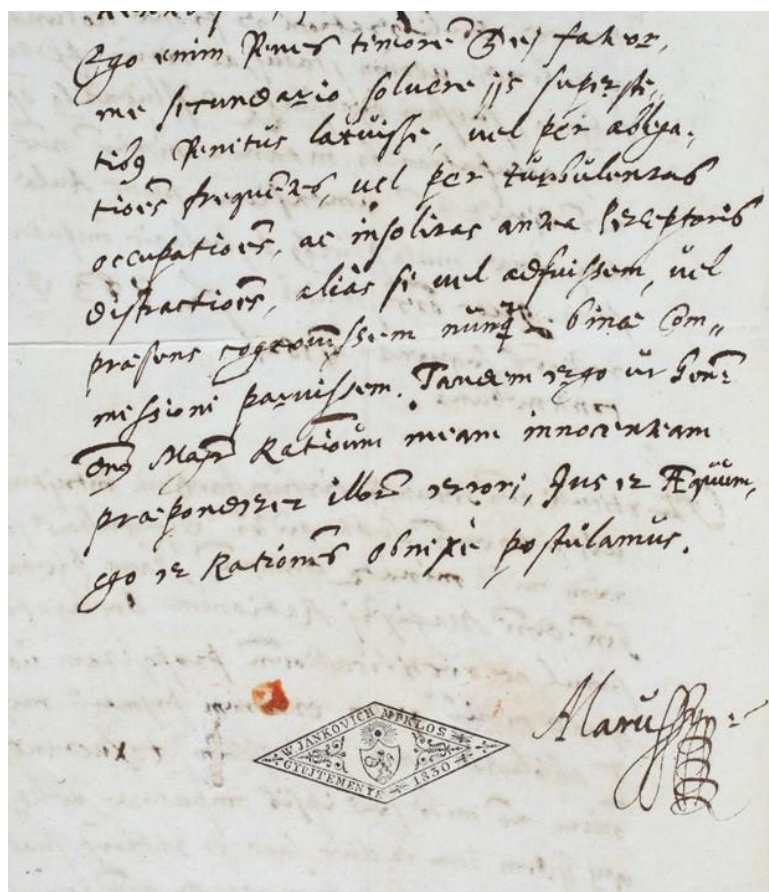 Ego enim penes timorem Dej fateor,
me secundario soluere ijs superste,,
tibus penitus latuisse, uel per ablega,,
tiões frequẽtes, uel per turbulentas
occupatiões, ac insolitas antea perceptoris
distractiões, aliàs si uel adfuissem, uel
præsens cognouissem nunq̃ binæ Com,,
missioni paruissem. Tandem ergo ut
Rationum meam innocentiam
præponderet illorũ errori, Jus et Æquum,
ego et Rationes obnixè postulamus.
Marussy
W. JANKOVICH MIKLOS
GYUJTEMENYE 1830